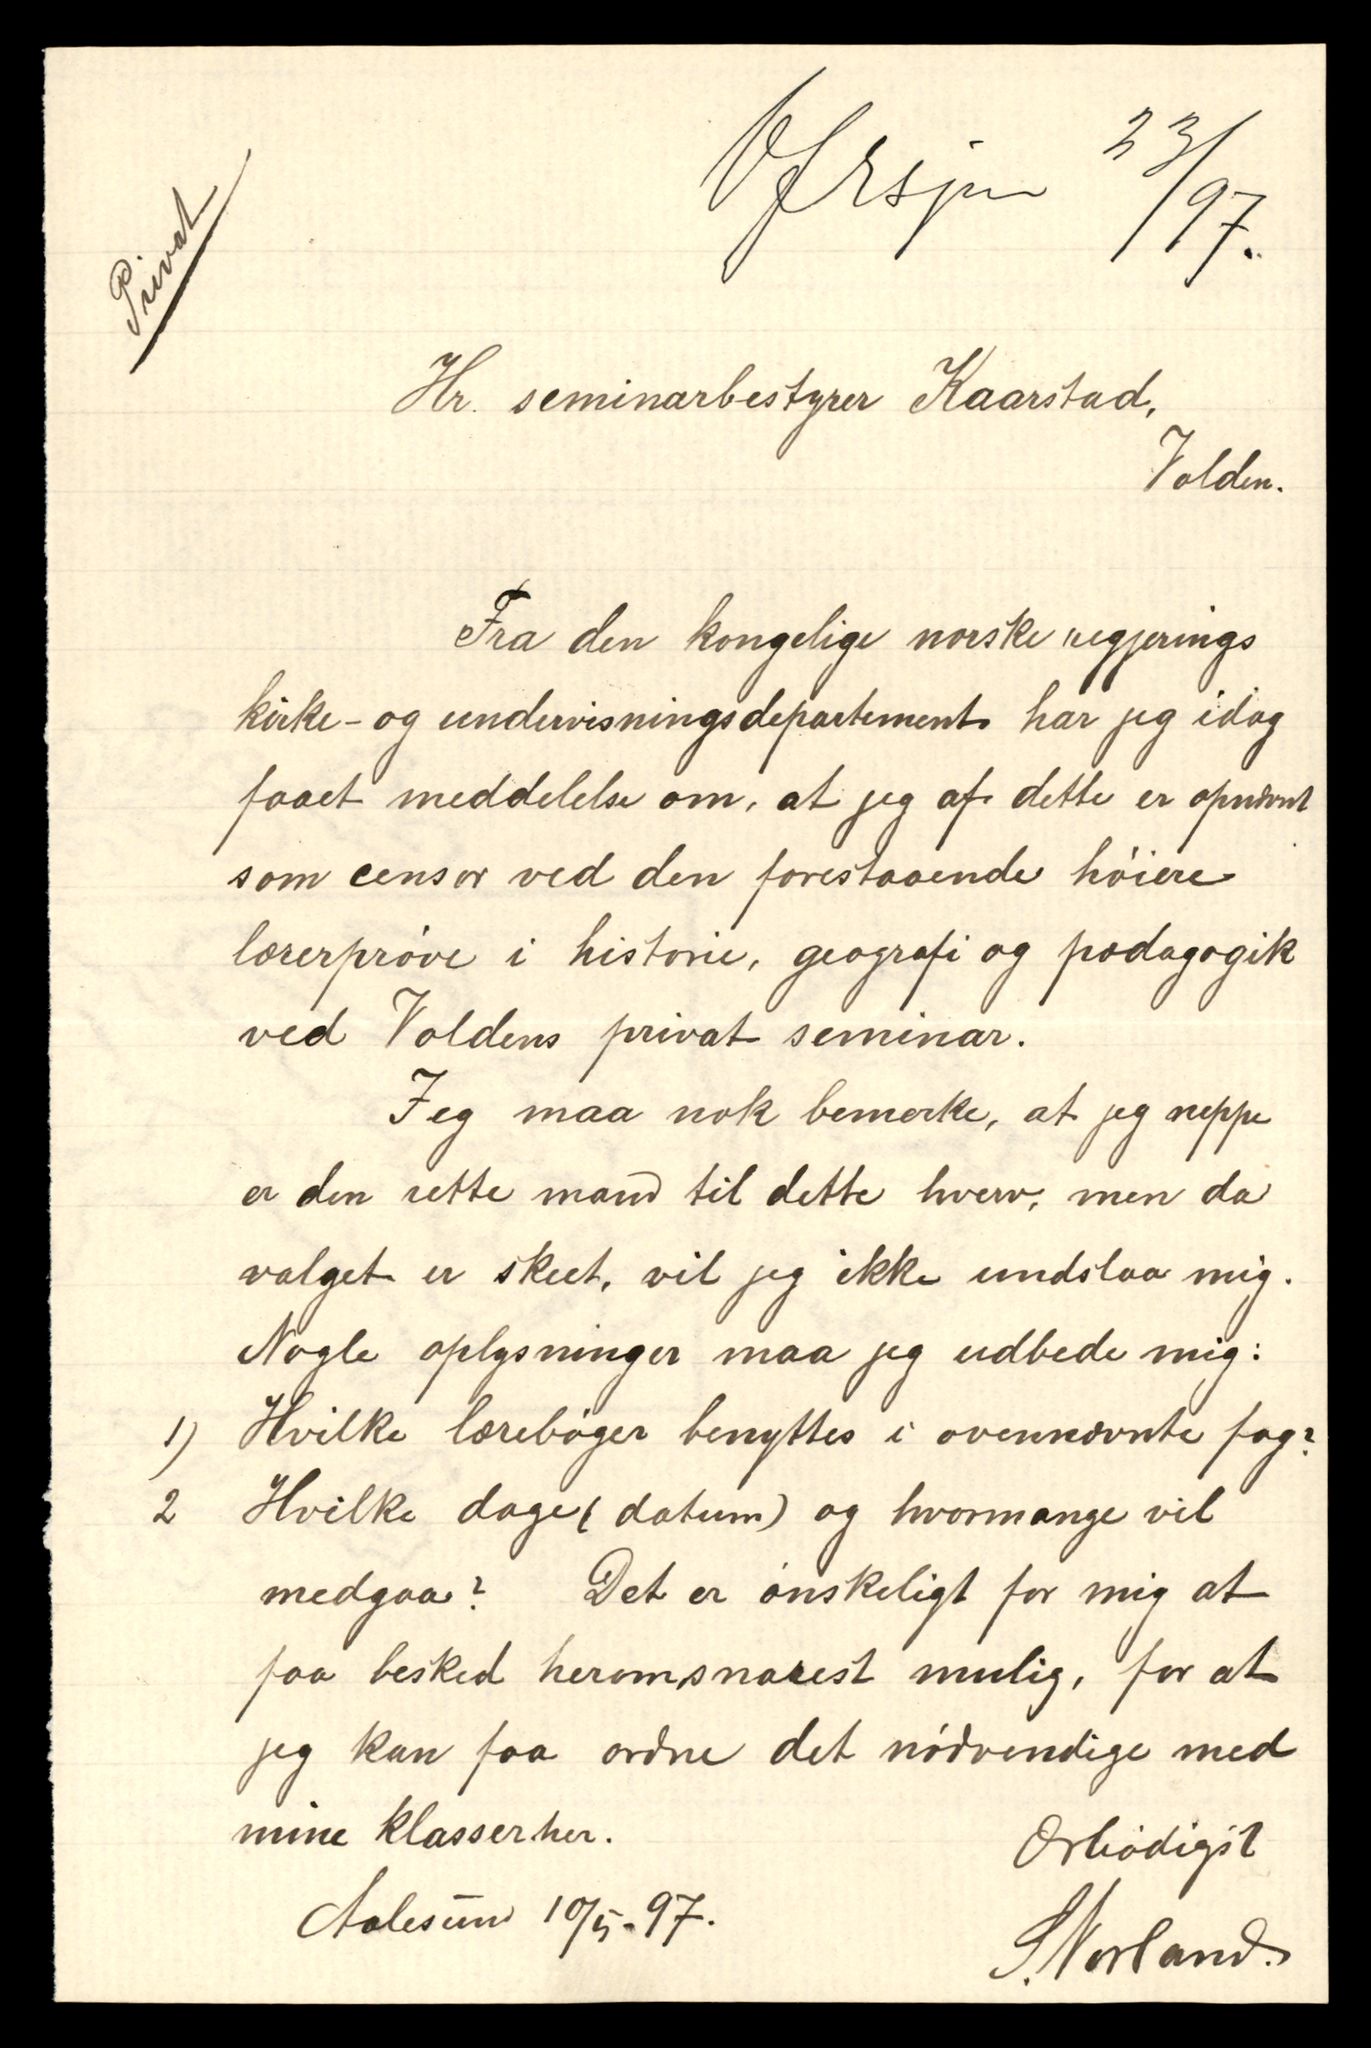 23/97.
Privat
Hr. seminarbestyrer Kaarstad,
Volden.
Fra den kongelige norske regjerings
kirke- og undervisningsdepartement har jeg idag
faaet meddelelse om, at jeg af dette er opnævnt
som censor ved den forestaaende höiere
lærerpröve i historie, geografi og pædagogik
ved Voldens privat seminar.
Jeg maa nok bemærke, at jeg neppe
er den rette mand til dette hverv, men da
valget er skeet, vil jeg ikke undslaa mig.
Nogle oplysninger maa jeg udbede mig:
1) Hvilke lærebøger benyttes i ovennævnte fag?
2 Hvilke dage (datum) og hvormange vil
medgaa? Det er ønskeligt for mig at
faa besked herom snarest mulig, for at
jeg kan faa ordne det nödvendige med
mine klasser her.
Ærbødigst
Aalesund 10/5-97.
S. Norland.